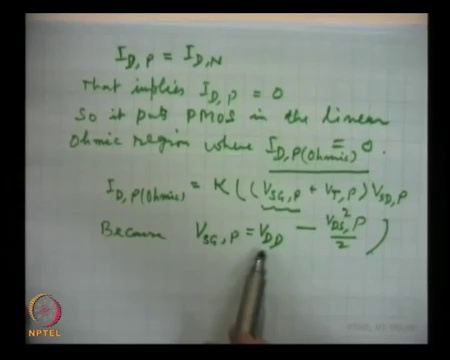 I_D,P = I_D,N
That implies I_D,P = 0
So it puts PMOS in the linear
Ohmic region where I_D,P(Ohmic) = 0.
I_D,P(Ohmic) = K((V_SG,P + V_T,P) V_SD,P
Because V_SG,P = V_DD − V_DS,P²/2)
NPTEL